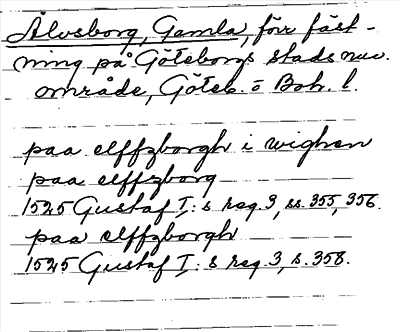 Älvsborg, Gamla, förr fäst-
ning på Göteborgs stads nuv.
område, Göteb. o Boh. l.
paa elffzborgh i wighen
paa elffzborg
1525 Gustaf I:s reg. 3, ss. 355, 356.
paa elffzborgh
1525 Gustaf I:s reg. 3, s. 358.